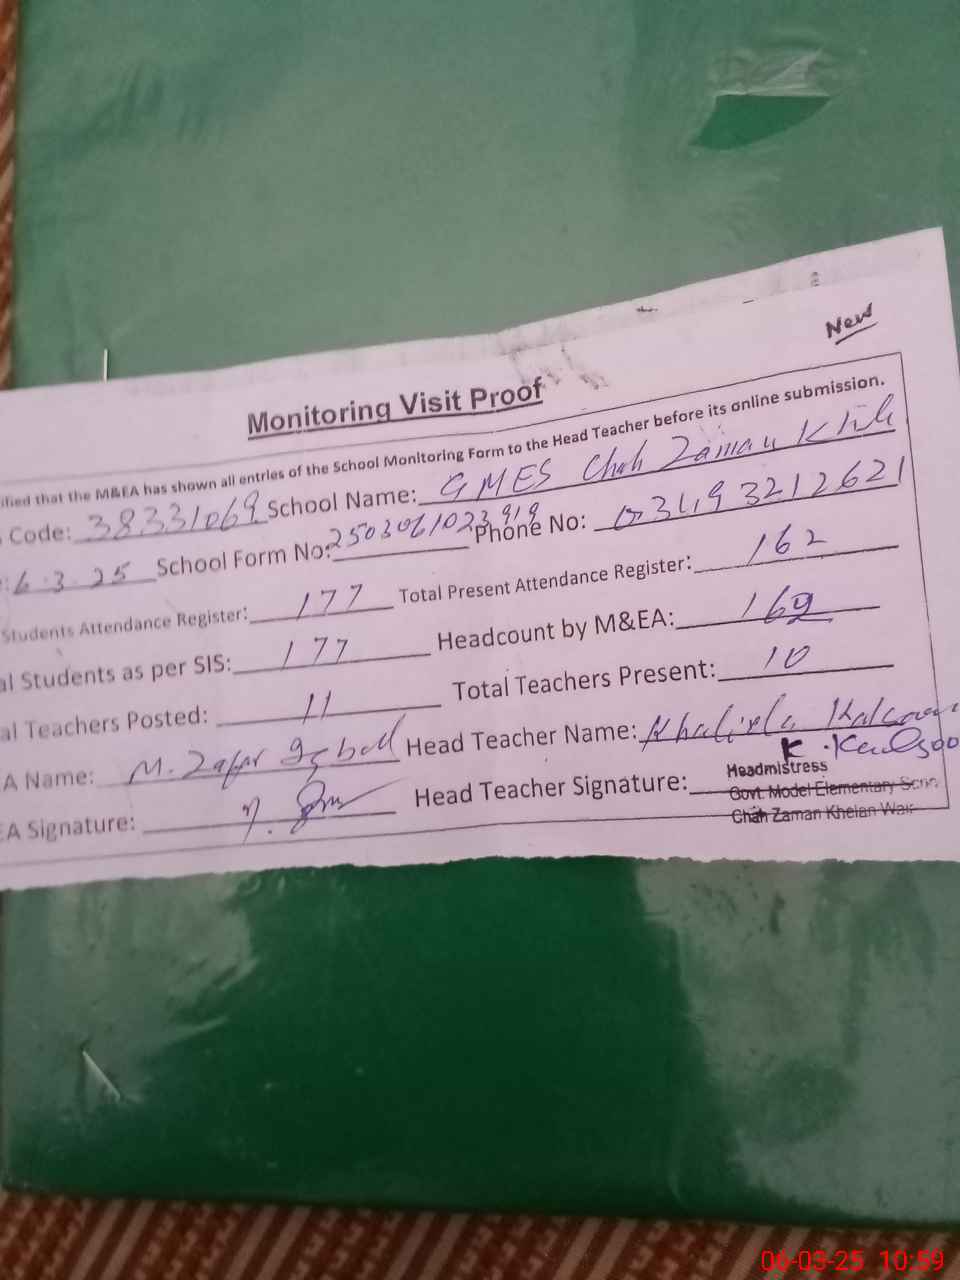 New
Monitoring Visit Proof
ified that the M&EA has shown all entries of the School Monitoring Form to the Head Teacher before its online submission.
Code: 38331069 School Name: GMES Chah Zaman
6.3.25 School Form No: 2503061023919 Phone No: 03493212621
Students Attendance Register: 177 Total Present Attendance Register: 162
al Students as per SIS: 177 Headcount by M&EA: 162
al Teachers Posted: 11 Total Teachers Present: 10
A Name: M. Zafar Iqball Head Teacher Name: Khalida Kalsoom
EA Signature: Head Teacher Signature: K.Kalsoo
Headmistress
Govt. Model Elementary
Chah Zaman Khelan
06-03-25 10:59